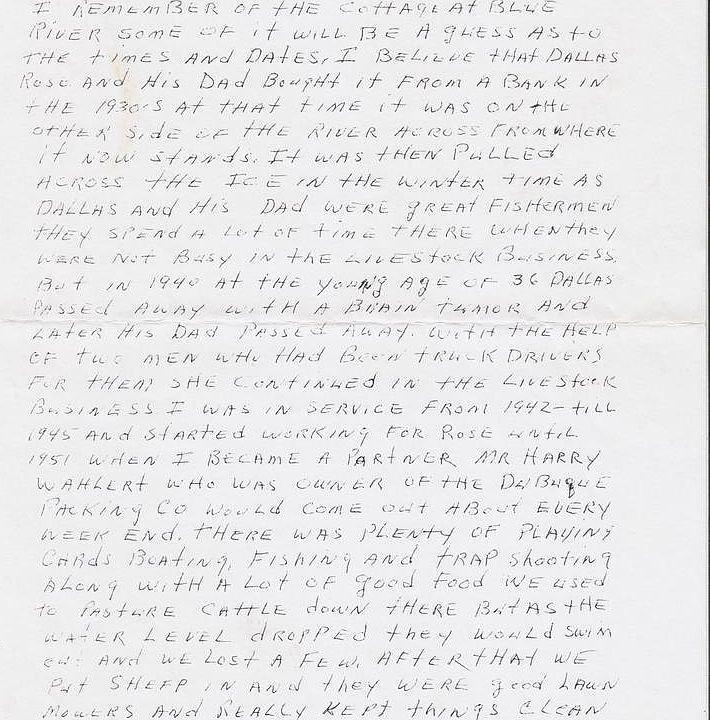 I REMEMBER OF THE COTTAGE AT BLUE
RIVER SOME OF it WILL BE A GUESS AS TO
THE times AND DATES, I BELIEVE tHAt DALLAS
ROSE AND His DAD BOUgHt it FROM A BANK IN
tHE 1930'S At tHAt tIME it WAS ON tHE
OtHER Side OF tHE RIVER ACROSS FROM WHERE
it NOW StANdS. It WAS tHEN PULLED
ACROSS tHE ICE IN tHE WINtER tIME AS
DALLAS AND His DAD WERE gREAt FISHERMEN
tHEY SPEND A Lot OF time tHERE WHEN they
WERE NOT BUSY IN tHE LIVEStOCK BUSINESS.
But IN 1940 At tHE young AgE OF 36 DALLAS
PASSED AWAY WitH A BRAIN tUMOR AND
LAtER His DAD PASSEd AWAY. WitH tHE HELP
OF two MEN WHO HAd BEEN tRUCK DRIVERS
FOR tHEM SHE CONtINUED IN tHE LIVEStock
BUSINESS I WAS IN SERVICE FROM 1942- tILL
1945 AND StARtEd WORKINg FOR ROSE UNtIL
1951 WHEN I BECAME A PARtNER MR HARRY
WAHLERt WHO WAS OWNER OF tHE DuBuque
PACKINg CO WOULD COME OUt ABOUt EVERY
WEEK END. tHERE WAS PLENTY OF PLAYINg
CARds BOAtINg, FISHINg AND tRAP SHOOtINg
ALONg WItH A LOt OF good Food WE USED
to PAStURE CAttLE dOWN tHERE But AS tHE
WAtER LEVEL dROPPED they WOULd SWIM
out AND WE LOSt A FEW. AFtER tHAt WE
Put SHEEP IN AND they WERE good LAWN
MOWERS AND REALLY KEPt tHINgS CLEAN